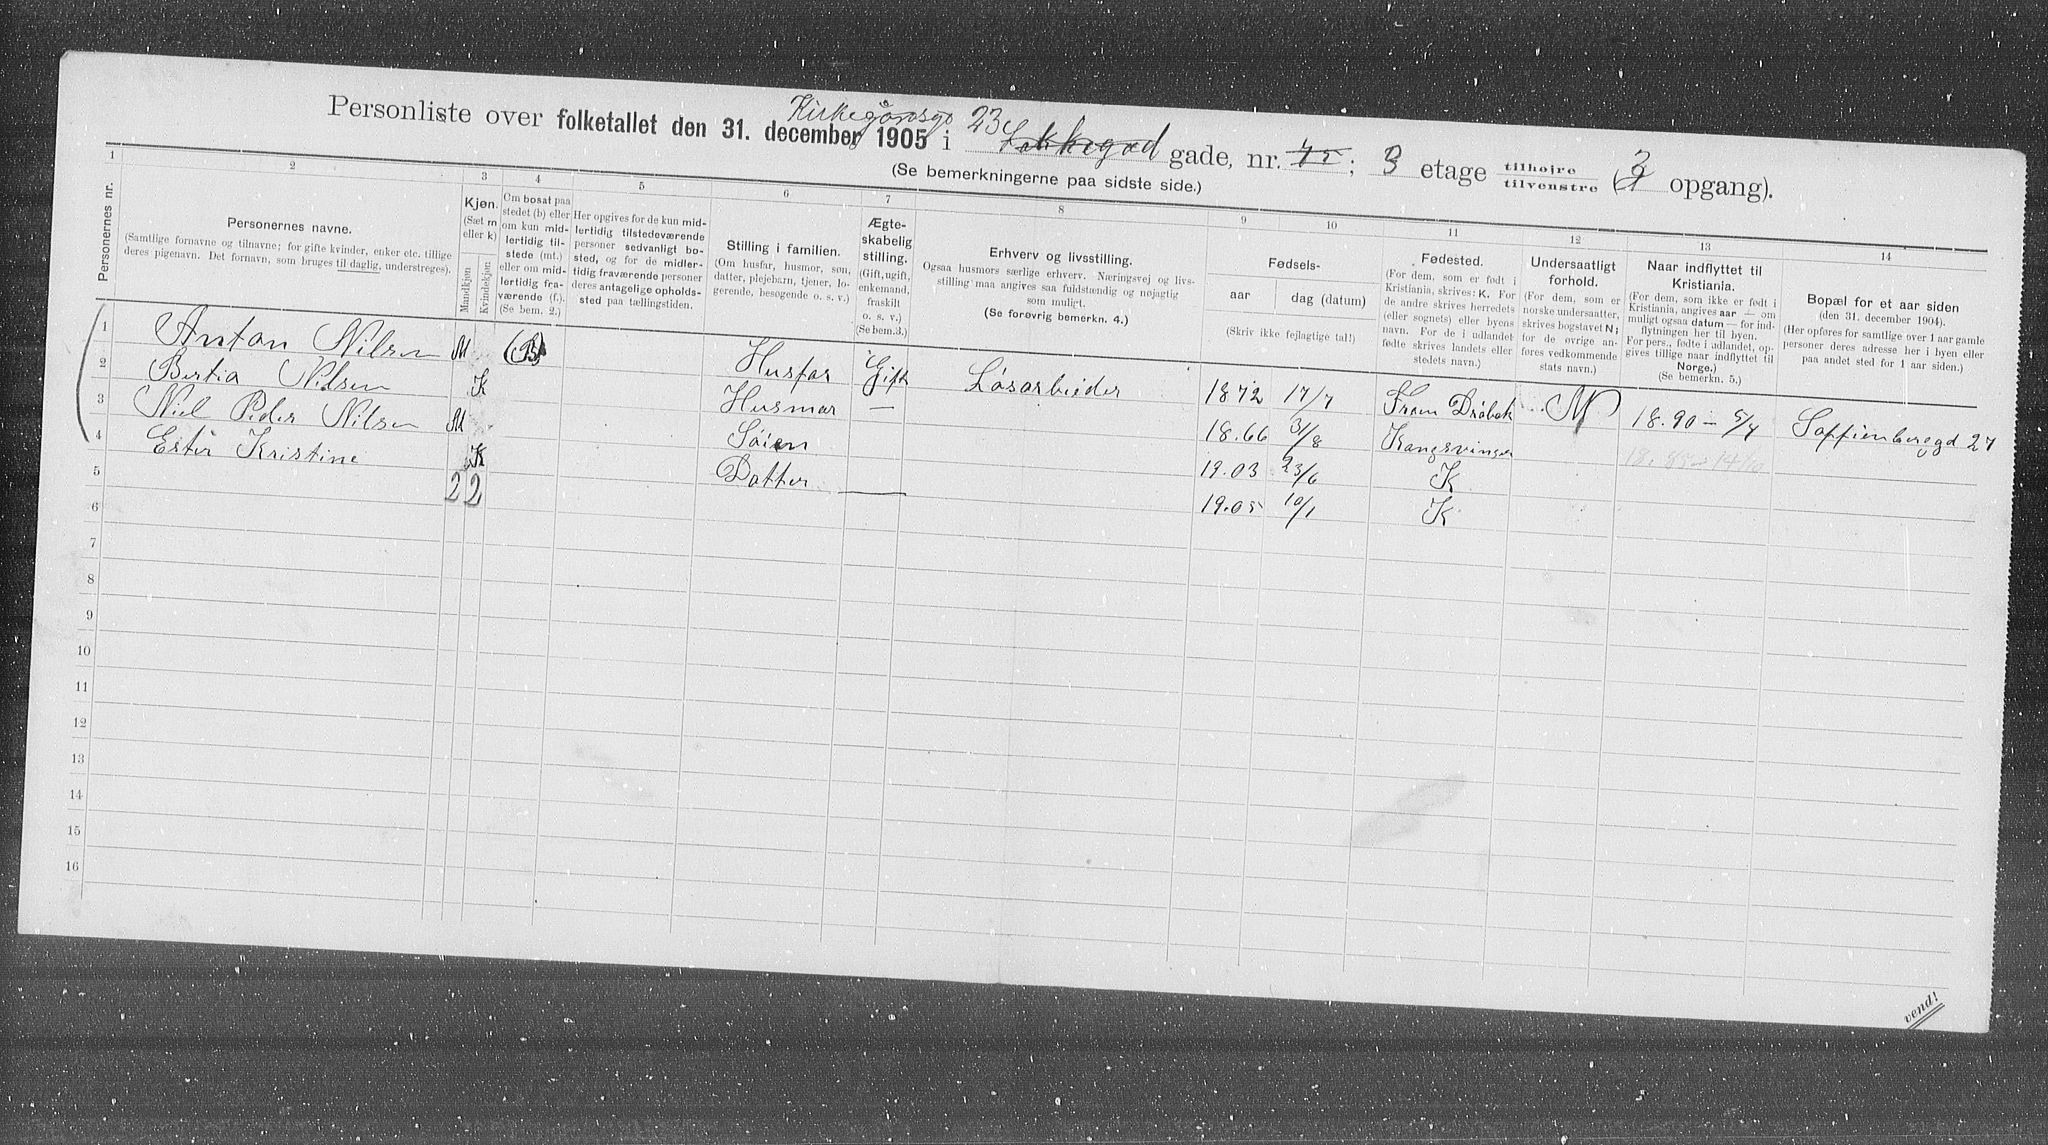 Kirkegårdsgd 23
Personliste over folketallet den 31. december 1905 i gade, nr. ; 3 etage tilhøjre tilvenstre (2 opgang).
(Se bemerkningerne paa sidste side.)
1 2 3 4 5 6 7 8 9 10 11 12 13 14
Personernes nr.
Personernes navne.
(Samtlige fornavne og tilnavne; for gifte kvinder, enker etc. tillige
deres pigenavn. Det fornavn, som bruges til daglig, understreges).
Kjøn.
(Sæt m
eller k)
Mandkjøn
Kvindekjøn.
Om bosat paa
stedet (b) eller
om kun mid-
lertidig til-
stede (mt.)
eller om mid-
lertidig fra-
værende (f.).
(Se bem. 2.)
Her opgives for de kun mid-
lertidig tilstedeværende
personer sedvanligt bo-
sted, og for de midler-
tidig fraværende personer
deres antagelige opholds-
sted paa tællingstiden.
Stilling i familien.
(Om husfar, husmor, søn,
datter, plejebarn, tjener, lo-
gerende, besøgende o. s. v.)
Ægte-
skabelig
stilling.
(Gift, ugift,
enkemand,
fraskilt
o. s. v.)
(Se bem.3.)
Erhverv og livsstilling.
Ogsaa husmors særlige erhverv. Næringsvej og livs-
stilling maa angives saa fuldstændig og nøjagtig
som muligt.
(Se forøvrig bemerkn. 4.)
Fødsels-
aar
dag (datum)
(Skriv ikke fejlagtige tal!)
Fødested.
(For dem, som er født i
Kristiania, skrives: K. For
de andre skrives herredets
(eller sognets) eller byens
navn. For de i udlandet
fødte skrives landets eller
stedets navn.)
Undersaatligt
forhold.
(For dem, som er
norske undersaatter,
skrives bogstavet N;
for de øvrige an-
føres vedkommende
stats navn.)
Naar indflyttet til
Kristiania.
(For dem, som ikke er født i
Kristiania, angives aar — om
muligt ogsaa datum — for ind-
flytningen her til byen.
For pers., fødte i udlandet, op-
gives tillige naar indflyttet til
Norge.)
(Se bemerkn. 5.)
Bopæl for et aar siden
(den 31. december 1904).
(Her opføres for samtlige over 1 aar gamle
personer deres adresse her i byen eller
paa andet sted for 1 aar siden.)
1 Anton Nilsen M (B) Husfar Gift Løsarbeider 1872 17/7 Drøbak N 18.90 - 5/4 Soffienberegd 27
2 Bertia Nilsen K Husmor — 18.66 31/8 Kongsvinger
3 Niel Peder Nilsen M Søien 19.03 23/6 K
4 Ester Kristine K Datter — 19.05 10/1 K
5 2 2
6
7
8
9
10
11
12
13
14
15
16
vend!